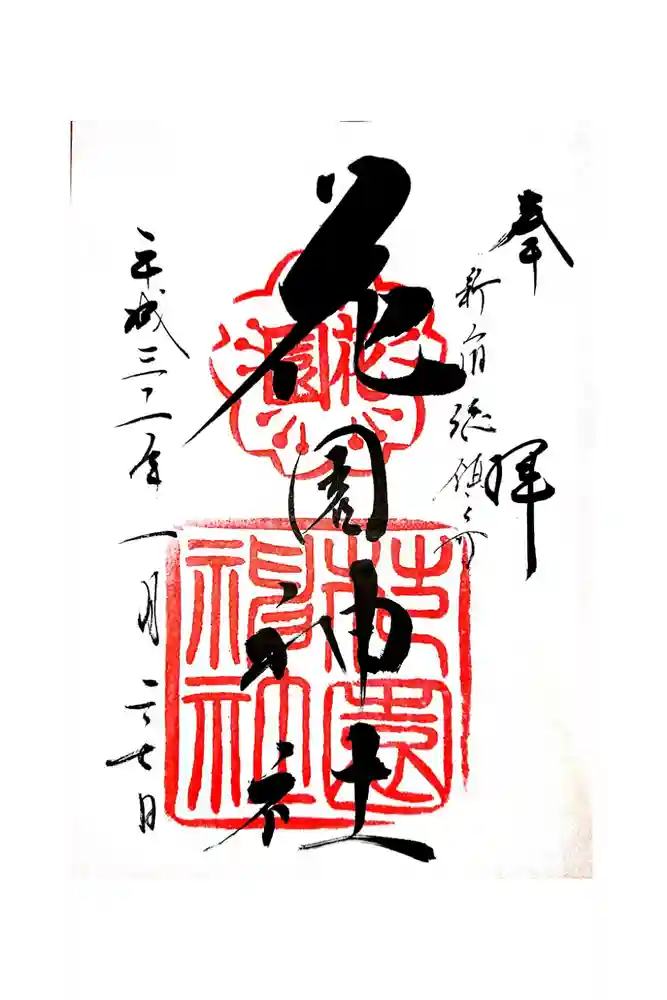 奉拝
新宿総鎮守
花園神社
平成三十一年一月二十七日
花園
花園神社